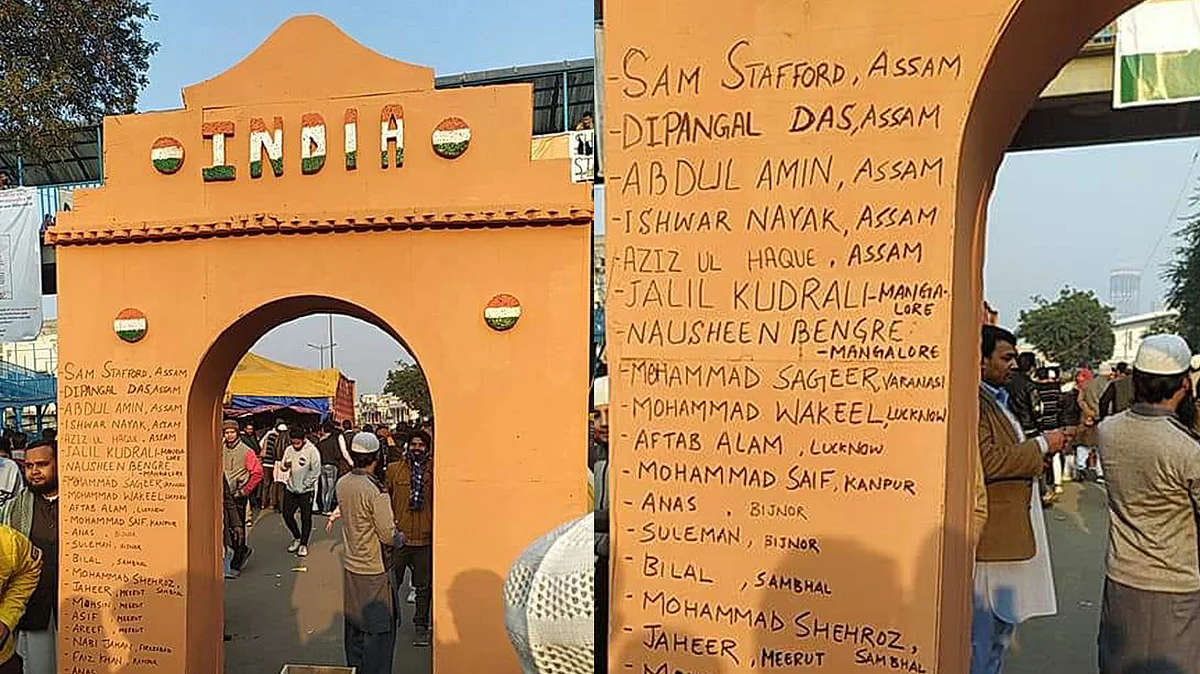 INDIA
SAM STAFFORD, ASSAM
DIPANGAL DAS, ASSAM
ABDUL AMIN, ASSAM
ISHWAR NAYAK, ASSAM
AZIZ UL HAQUE, ASSAM
JALIL KUDRALI-MANGA-
LORE
NAUSHEEN BENGRE
-MANGALORE
MOHAMMAD SAGEER, VARANASI
MOHAMMAD WAKEEL, LUCKNOW
AFTAB ALAM, LUCKNOW
MOHAMMAD SAIF, KANPUR
- ANAS, BIJNOR
- SULEMAN, BIJNOR
- BILAL, SAMBHAL
- MOHAMMAD SHEHROZ,
JAHEER, MEERUT SAMBHAL
- MOHSIN, MEERUT
- ASIF, MEERUT
- AREEF, MEERUT
- NABI JAHAN, FIROZABAD
- FAIZ KHAN, RAMPUR
- ANAS
- SAM STAFFORD, ASSAM
- DIPANGAL DAS, ASSAM
- ABDUL AMIN, ASSAM
- ISHWAR NAYAK, ASSAM
- AZIZ UL HAQUE, ASSAM
- JALIL KUDRALI-MANGA-
LORE
- NAUSHEEN BENGRE
-MANGALORE
- MOHAMMAD SAGEER, VARANASI
- MOHAMMAD WAKEEL, LUCKNOW
- AFTAB ALAM, LUCKNOW
- MOHAMMAD SAIF, KANPUR
- ANAS, BIJNOR
- SULEMAN, BIJNOR
- BILAL, SAMBHAL
- MOHAMMAD SHEHROZ,
- JAHEER, MEERUT SAMBHAL